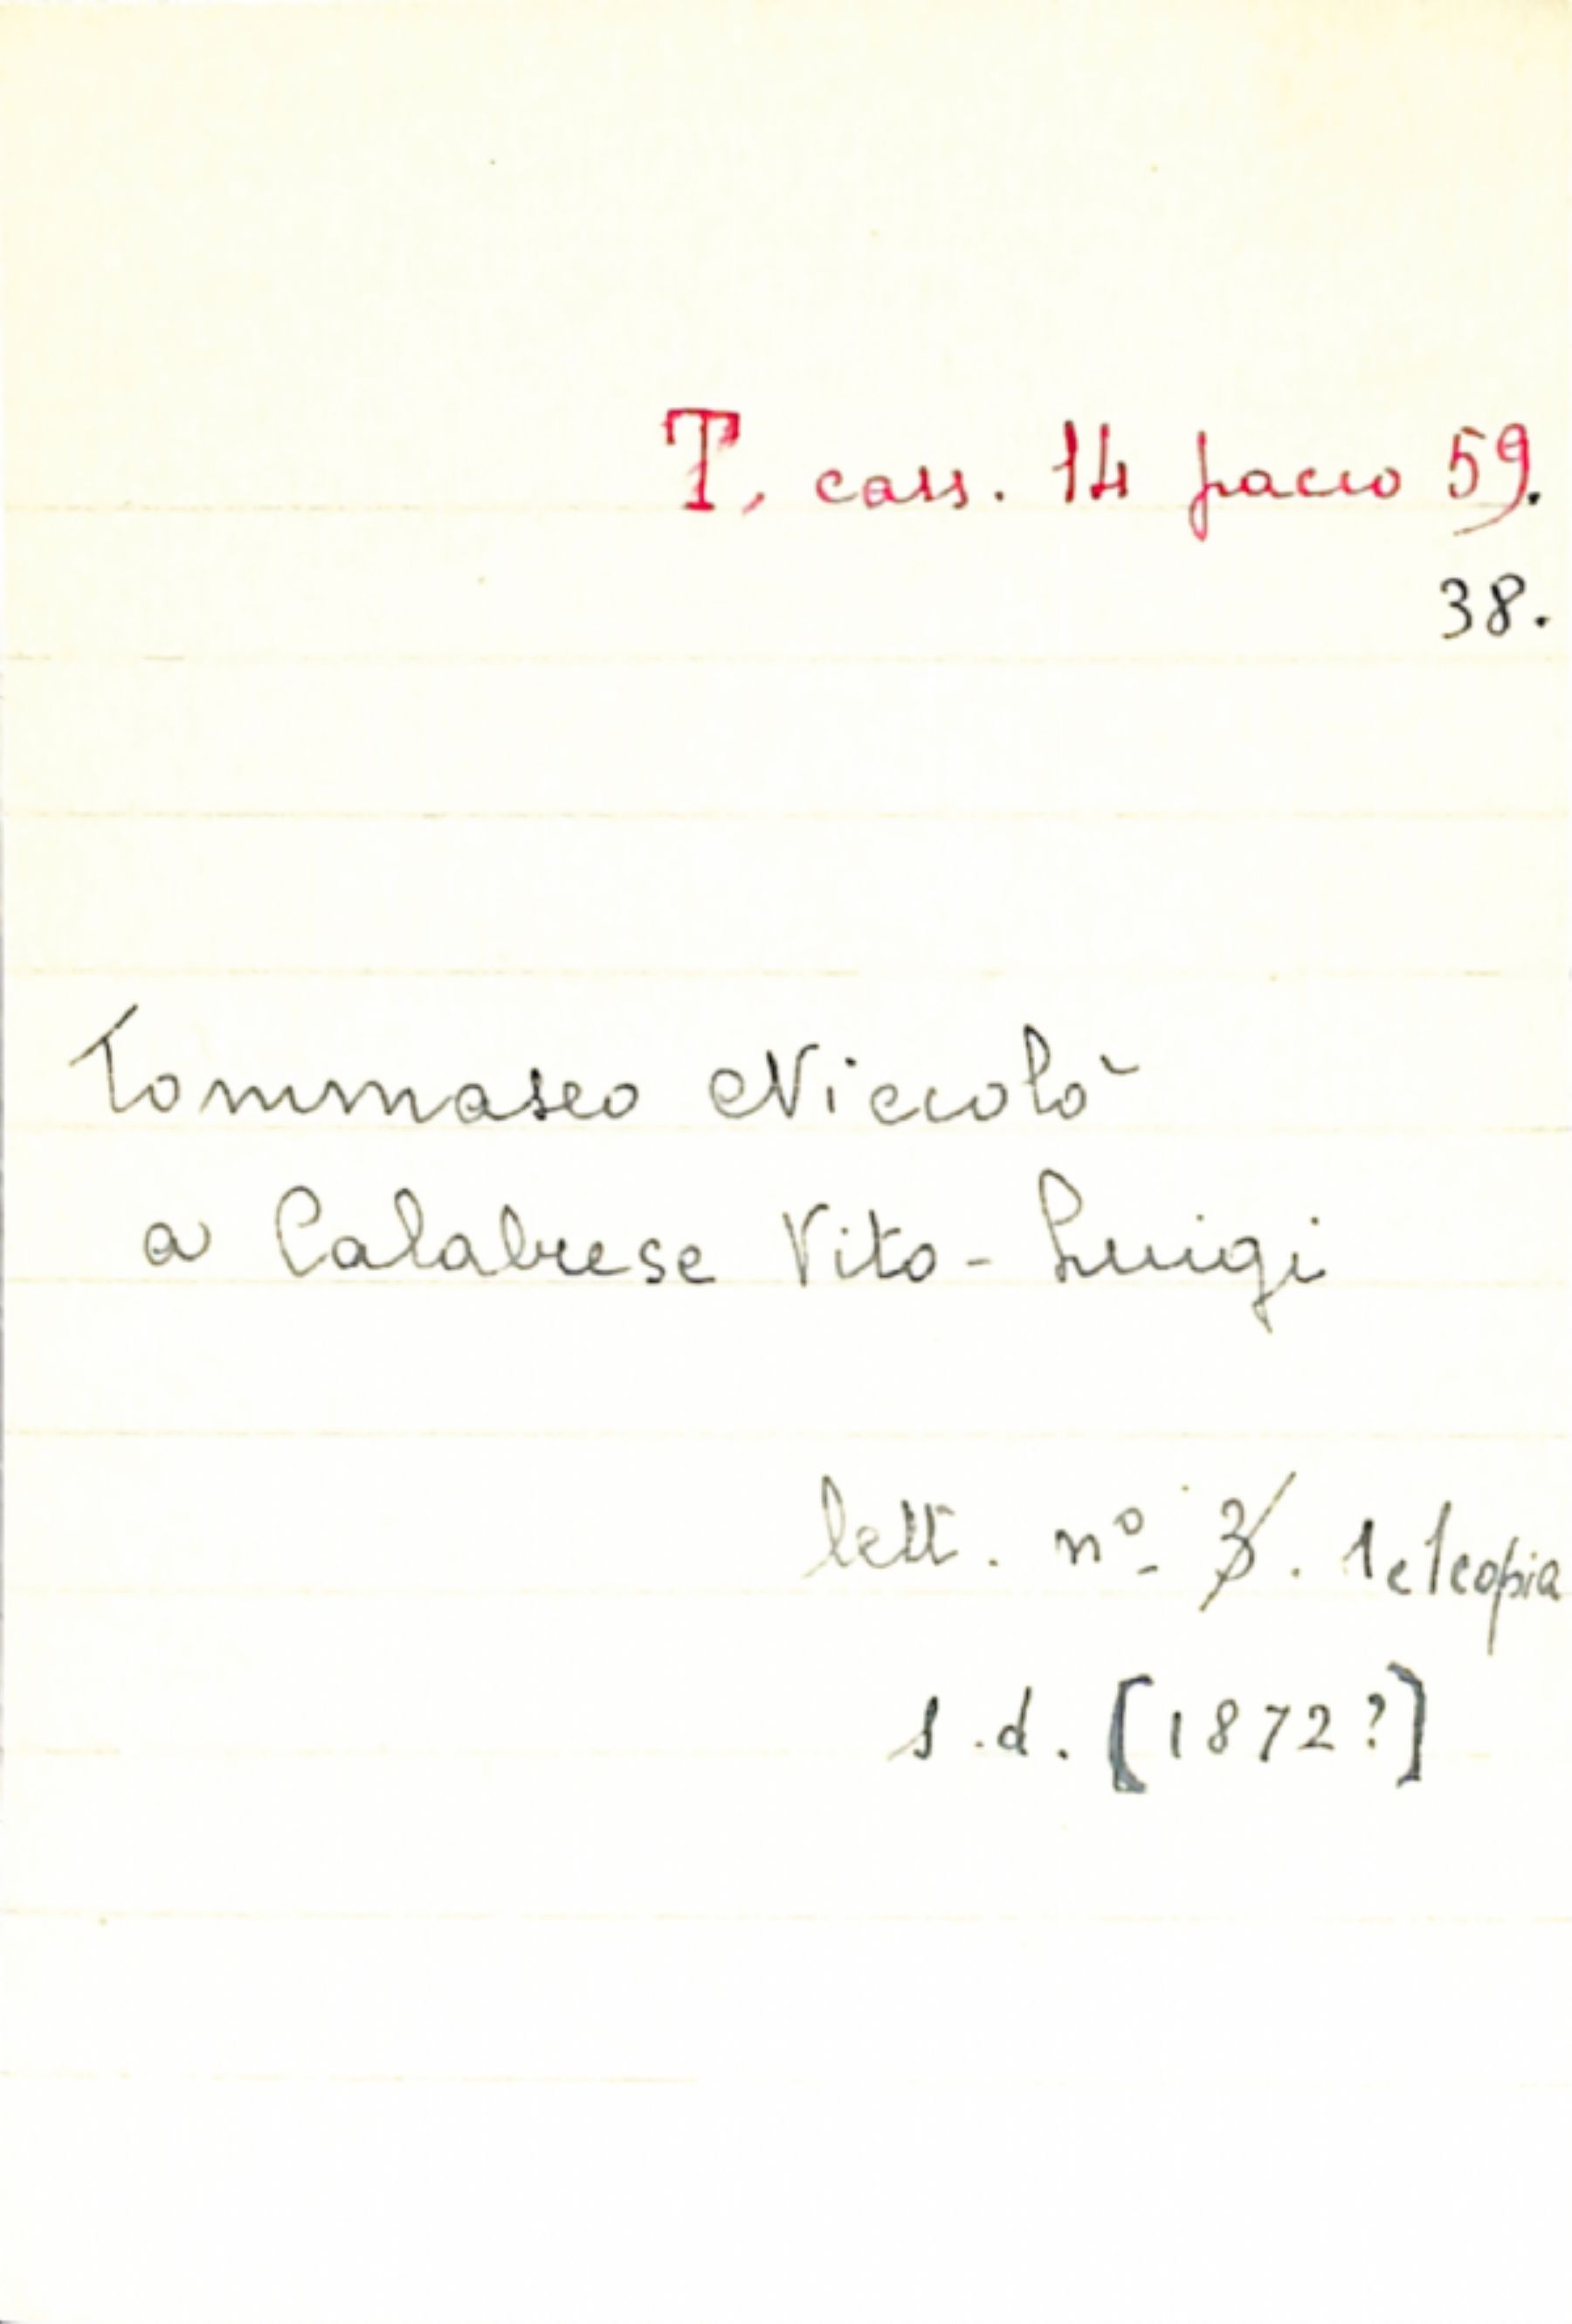 T, cass. 14 pacco 59.
38.
Tommaseo Niccolò
a Calabrese Vito - Luigi
lett. nº 3. 1 e 1 copia
s.d. [1872?]